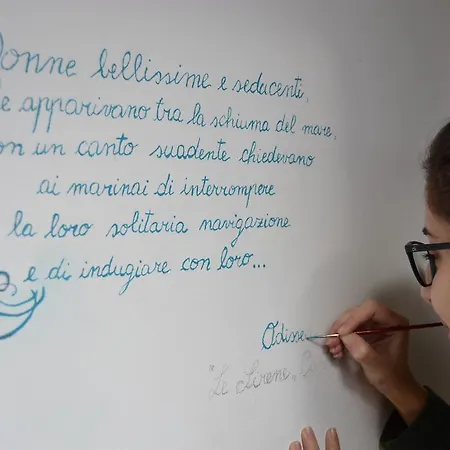 Donne bellissime e seducenti,
apparivano tra la schiuma del mare,
con un canto suadente chiedevano
ai marinai di interrompere
la loro solitaria navigazione
e di indugiare con loro...
Odisse
"Le Sirene"